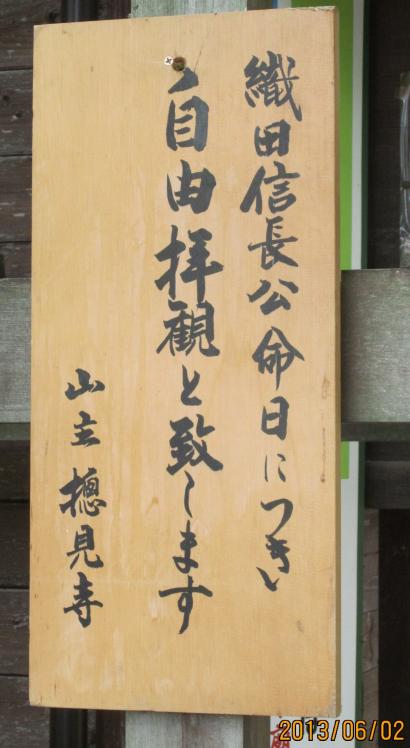 織田信長公命日につき
自由拝観と致します
山主摠見寺
2013/06/02